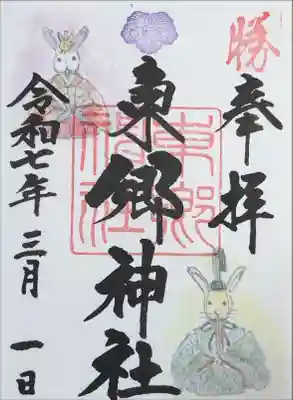 勝
奉拝
東郷神社
東郷神社
令和七年 三月 一日